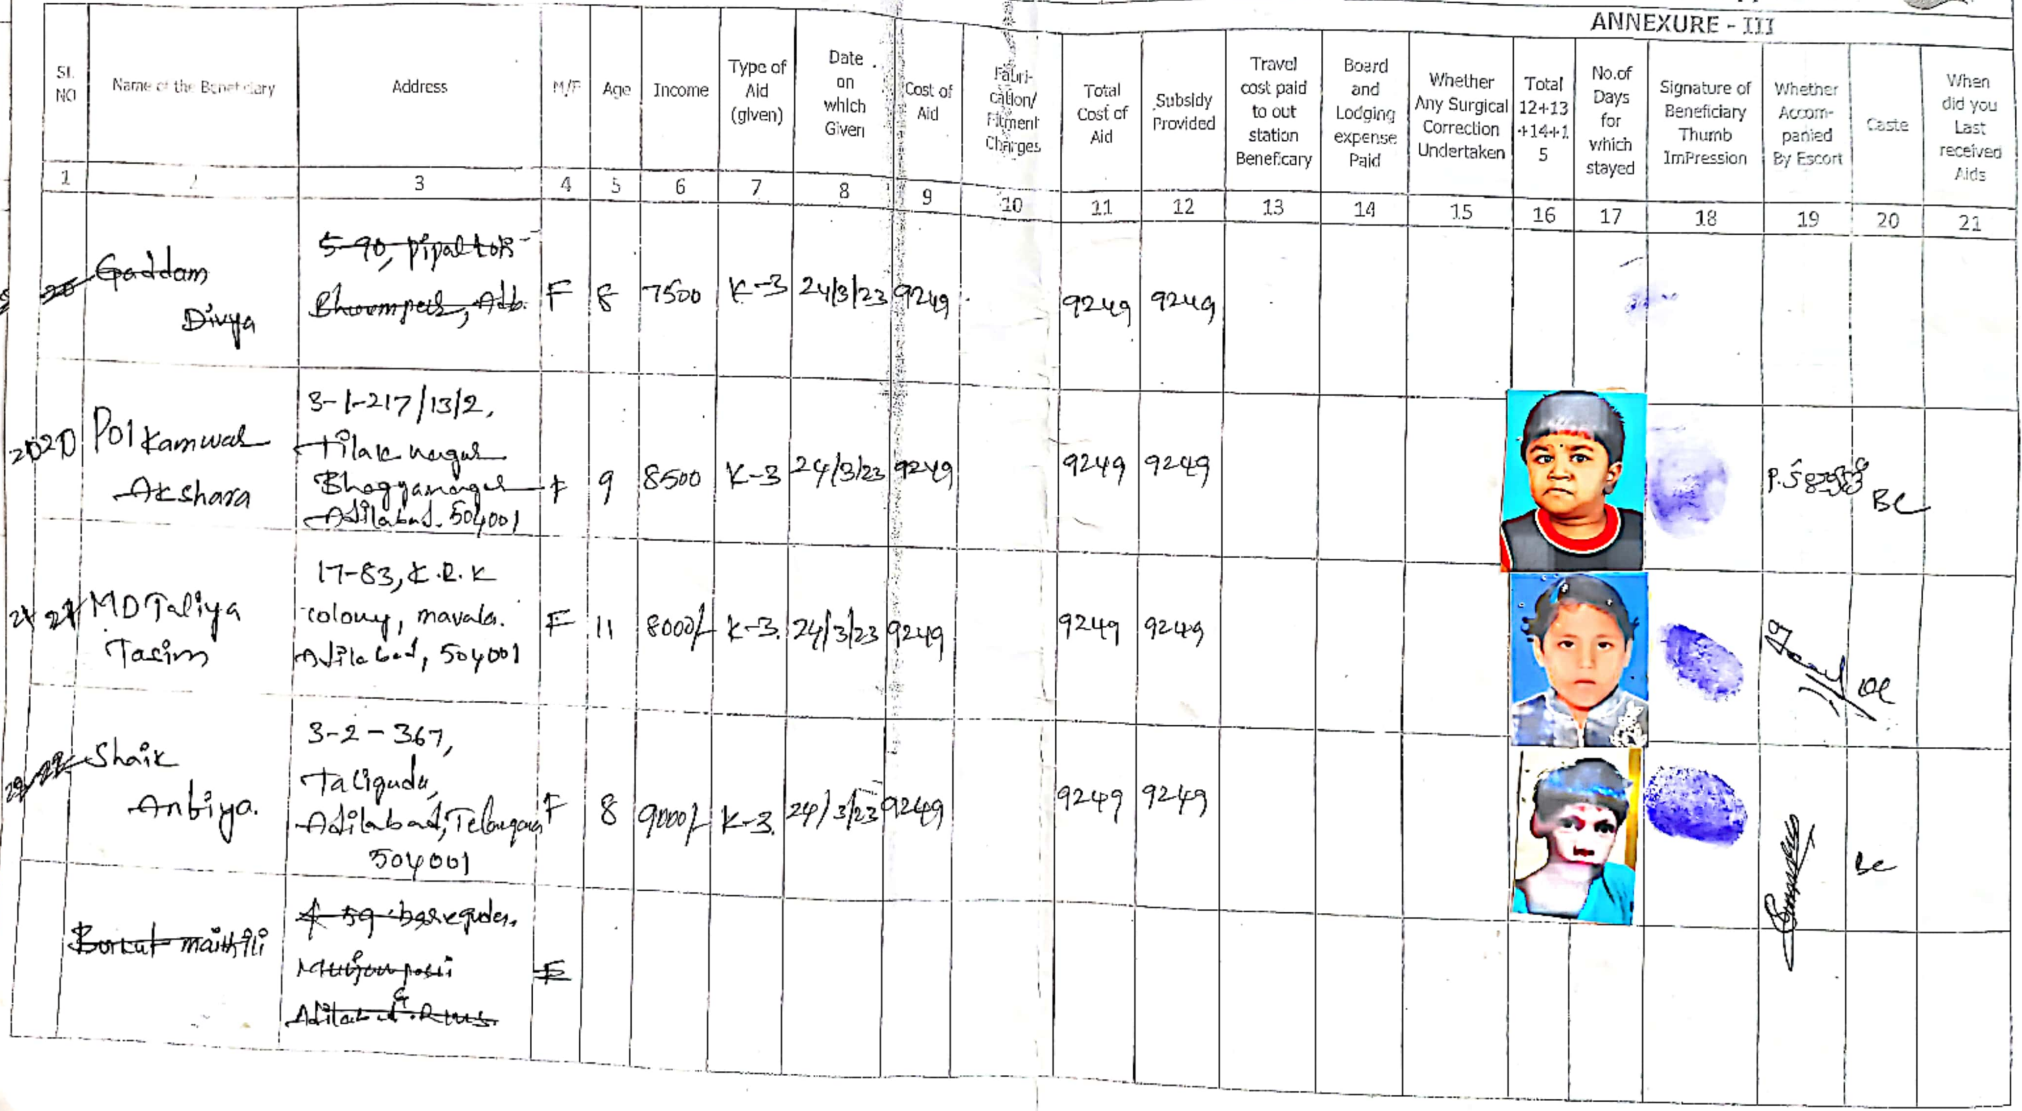 ANNEXURE - III
Sl. NO
Name of the Beneficiary
Address
M/F
Age
Income
Type of Aid (given)
Date on which Given
Cost of Aid
Fabri-cation/ Fitment Charges
Total Cost of Aid
Subsidy Provided
Travel cost paid to out station Beneficary
Board and Lodging expense Paid
Whether Any Surgical Correction Undertaken
Total 12+13+14+15
No.of Days for which stayed
Signature of Beneficiary Thumb ImPression
Whether Accom-panied By Escort
Caste
When did you Last received Aids
1 2 3 4 5 6 7 8 9 10 11 12 13 14 15 16 17 18 19 20 21
20 Gaddam
Divya
5-90,
Adb.
F 8 7500 K-3 24/3/23 9249 9249 9249
20 Polkamwar
Akshara
3-1-217/13/2,
Tilak nagar
Adilabad. 504001
F 9 8500 K-3 24/3/23 9249 9249 9249
BC
21 MD Taliya
Tasim
17-83, K.R.K
colony, mavala.
Adilabad, 504001
F 11 8000/- K-3. 24/3/23 9249 9249 9249
OC
22 Shaik
Anbiya.
3-2-367,
Taliguda,
Adilabad, Telangana
504001
F 8 9000/- K-3. 24/3/23 9249 9249 9249
BC
maithili
F